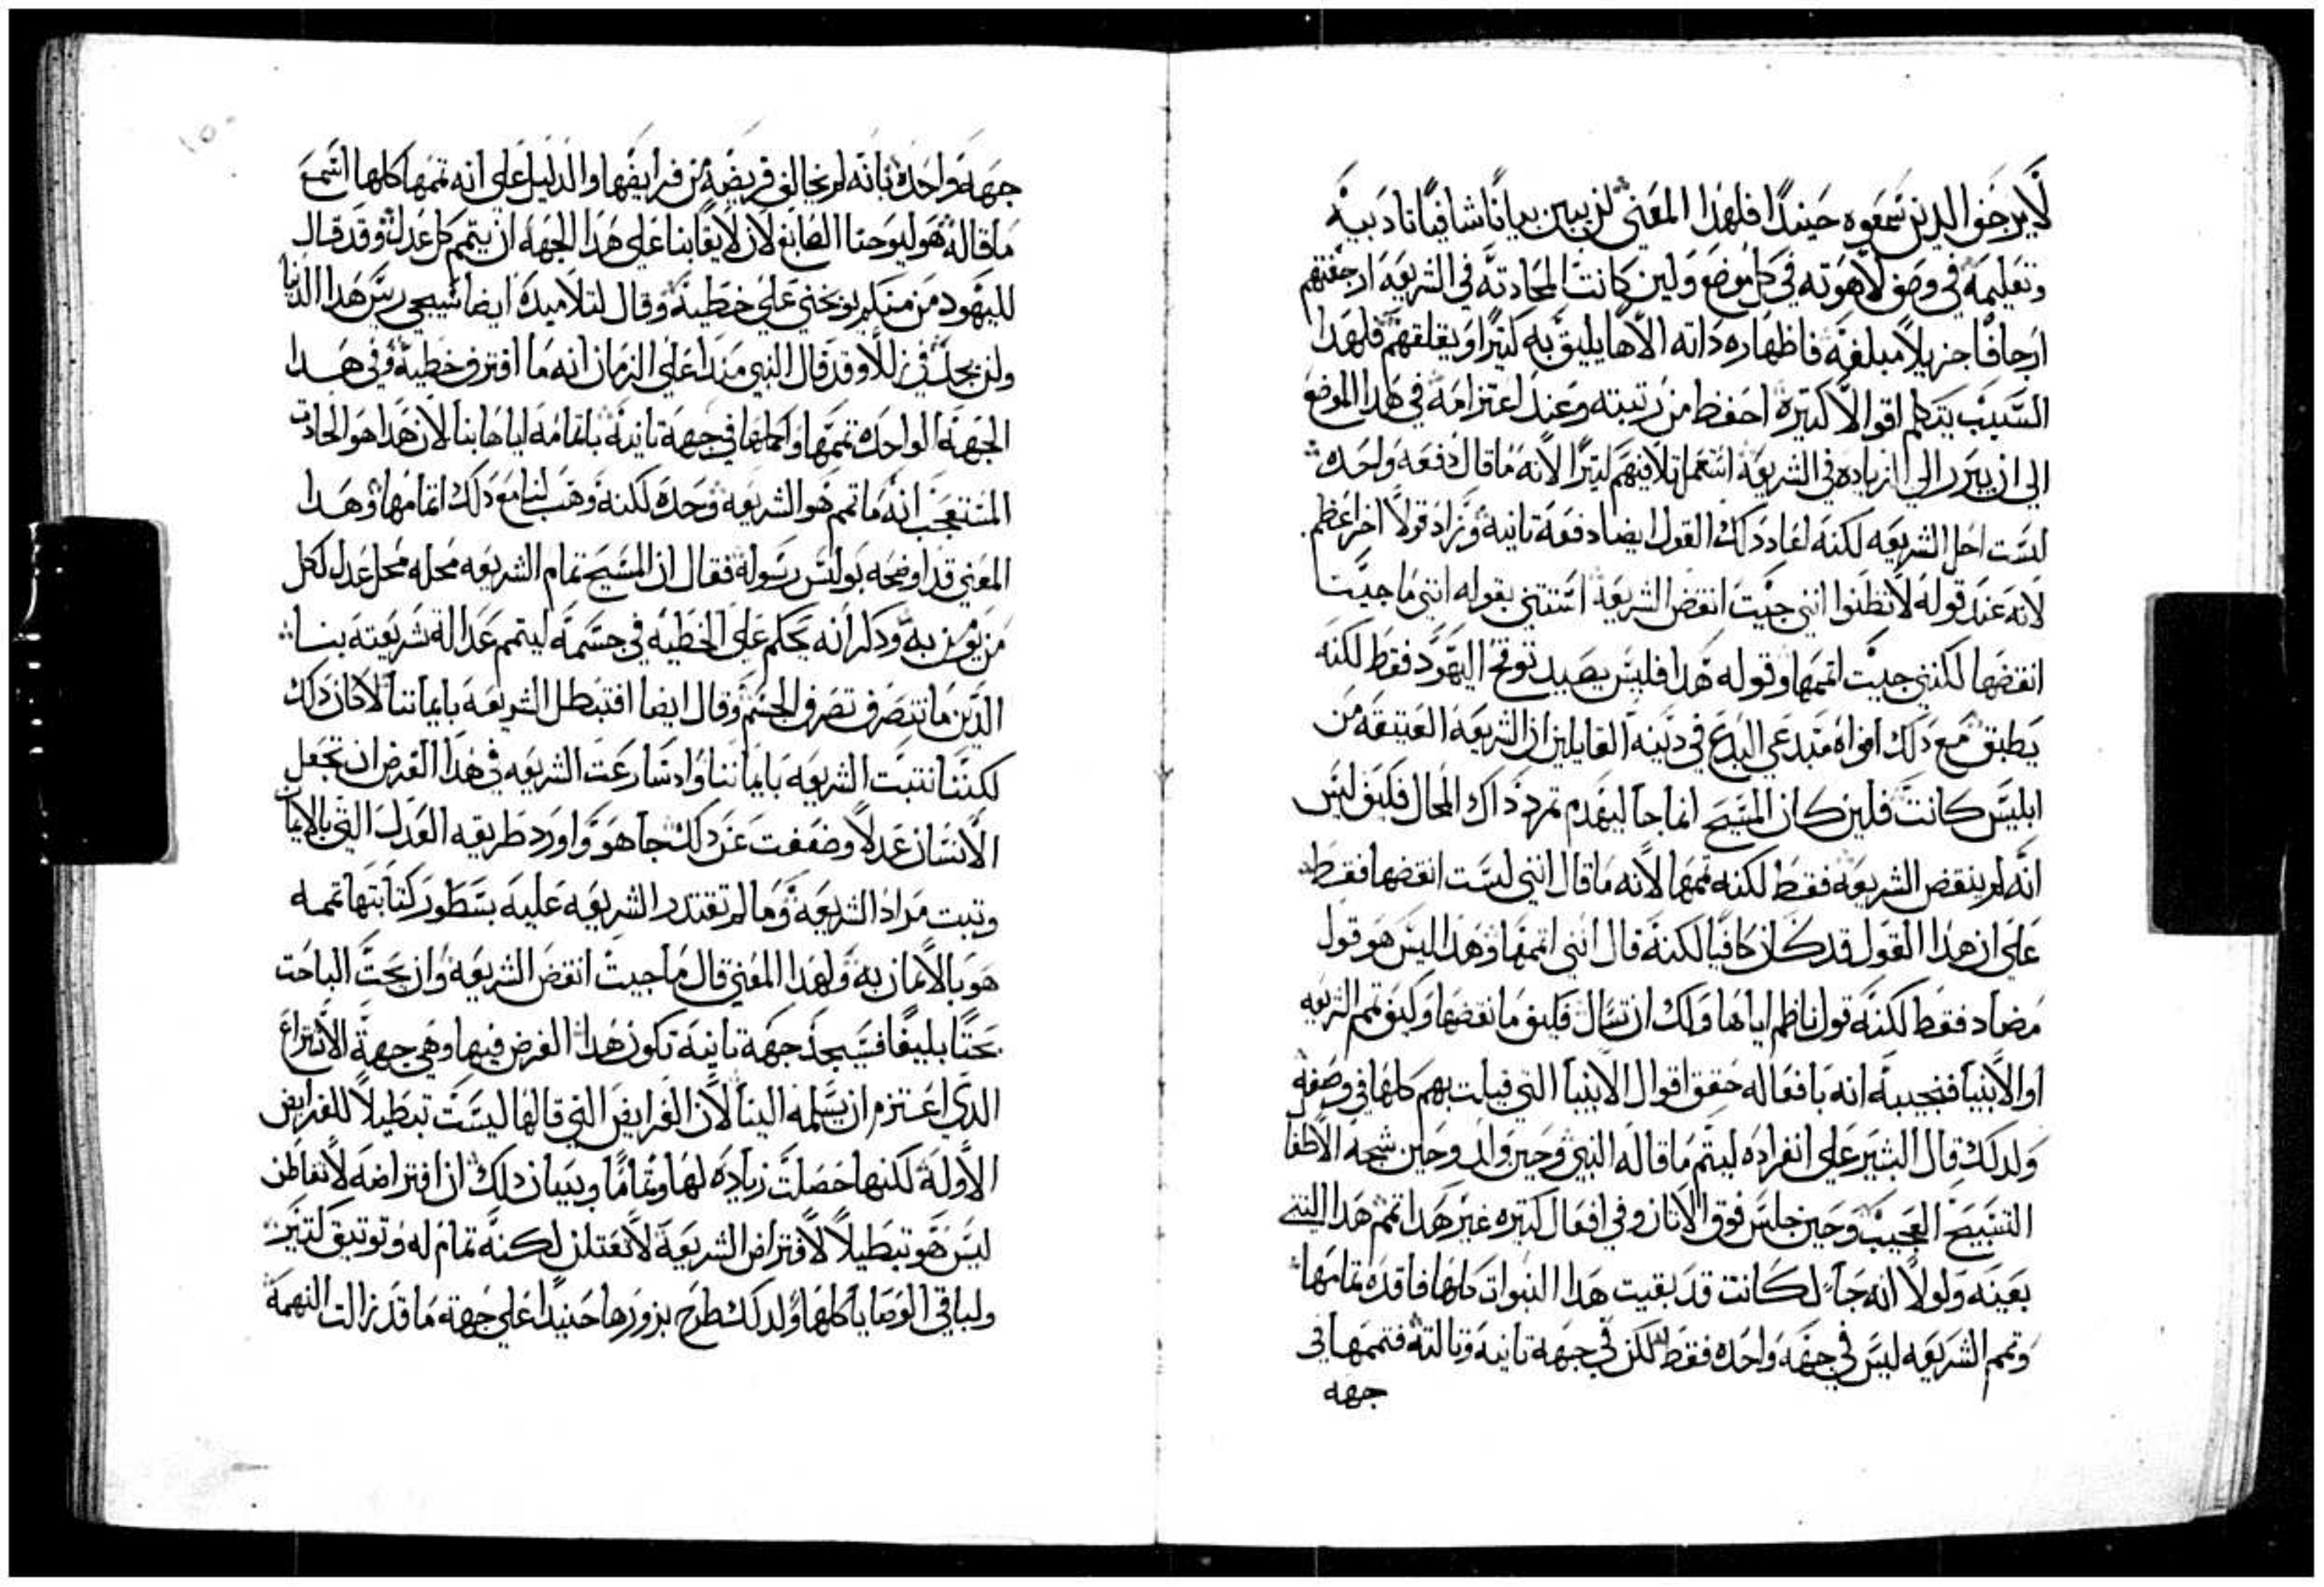 لا يرجفوا الدين سمعوه حينيدًا فلهذا المعني لن يبين بيانًا شافيًا تاديبه
وتعليمه في وصف لاهوته في كل موضع ولين كانت المحادته في الشريعه ارجفتهم
ارجافًا جزيلاً مبلغه فاظهاره داته الاها يليق به كتيرًا ويقلقهم فلهدا
السبب يتكلم اقوالاً كتيره احفظ من رتبته وعند اعتزامه في هدا الموضع
الي ان يبرر الي الزياده في الشريعه استعمل تلافيهم كتيرًا لانه ما قال دفعه واحده
لست احل الشريعه لكنه اعاد دلك القول ايضا دفعه تانيه وزاد قولاً اخر اعظم
لانه عند قوله لا تظنوا انني جيت انقض الشريعه استتني بقوله انني ما جيت
انقضها لكنني جيت اتممها وقوله هدا فليس يصيد توقح اليهود فقط لكنه
يطبق مع دلك افواه مبتدعي البدع في دينه القايلين ان الشريعه العتيقه من
ابليس كانت فلين كان المسيح انما جا ليهدم تمرد داك المحال فكيف ليس
انه لم ينقض الشريعه فقط لكنه تممها لانه ما قال انني لست انقضها فقط
علي ان هدا القول قد كان كافيا لكنه قال انني اتممها وهدا ليس هو قول
مضاد فقط لكنه قول ناظم اياها ولك ان تسال فكيف ما نقضها وكيف تمم الشريعه
او الانبيا فنجيبه انه بافعاله حقق اقوال الانبيا التي قيلت بهم كلها في وصفه
ولدلك قال البشير علي انفراده ليتم ما قاله النبي وحين ولد وحين سبحه الاطفا
التسبيح العجيب وحين جلس فوق الاتان وفي افعال كتيره غير هدا تمم هدا التتي
بعينه ولولا انه جا لكانت قد بقيت هدا النبوات كلها فاقده تمامها
وتمم الشريعه ليس في جهه واحده فقط لكن في جهه تانيه وتالته فتممها في
جهه
جهه واحده بانه لم يخالف فريضه من فرايضها والدليل علي انه تممها كلها اسمع
ما قاله هو ليوحنا الصابغ لان لايقًا بنا علي هدا الجهه ان يتمم كل عدل وقد قال
لليهود من منكم يوبخني علي خطيه وقال لتلاميده ايضا سيجي ريس هدا الدنيا
ولن يجد في زللاً وقد قال النبي مند اعلي الزمان انه ما اقترف خطيه وفي هدا
الجهه الواحده تممها واكملها في جهه تانيه باتمامه اياها بنا لان هدا هو الحادت
المستعجب انه ما تمم هو الشريعه وحده لكنه وهب لنا مع دلك اتمامها وهدا
المعني قد اوضحه بولس رسوله فقال ان المسيح تمام الشريعه محله محل عدل لكل
من يومن به ودكر انه يحكم علي الخطيه في جسمه ليتمم عدالة شريعته بنا
الدين ما نتصرف تصرف الجسم وقال ايضا افتبطل الشريعه بايماننا لا كان دلك
لكننا نتبت الشريعه بايماننا واد سارعت الشريعه في هدا الغرض ان تجعل
الانسان عدلاً وضعفت عن دلك جا هو واورد طريقه العدل التي بالايمان
وتبت مراد الشريعه وما لم تقتدر الشريعه عليه بسطور كتابتها تممه
هو بالايمان به ولهدا المعني قال ما جيت انقض الشريعه وان بحت الباحت
بحتًا بليغًا فسيجد جهه تانيه تكون هدا الغرض فيها وهي جهة الاشتراع
الدي اعتزم ان يسلمه الينا لان الفرايض التي قالها ليست تبطيلاً للفرايض
الاوله لكنها حصلت زياده لها وتمامًا وبيان دلك ان افتراضه لا تغتاظن
ليس هو تبطيلاً لافتراض الشريعه لا تقتلن لكنه تمام له وتوتيق كتير
ولباقي الوصايا كلها ولدلك طرح بزورها حينيدا علي جهة ما قد زالت التهمه